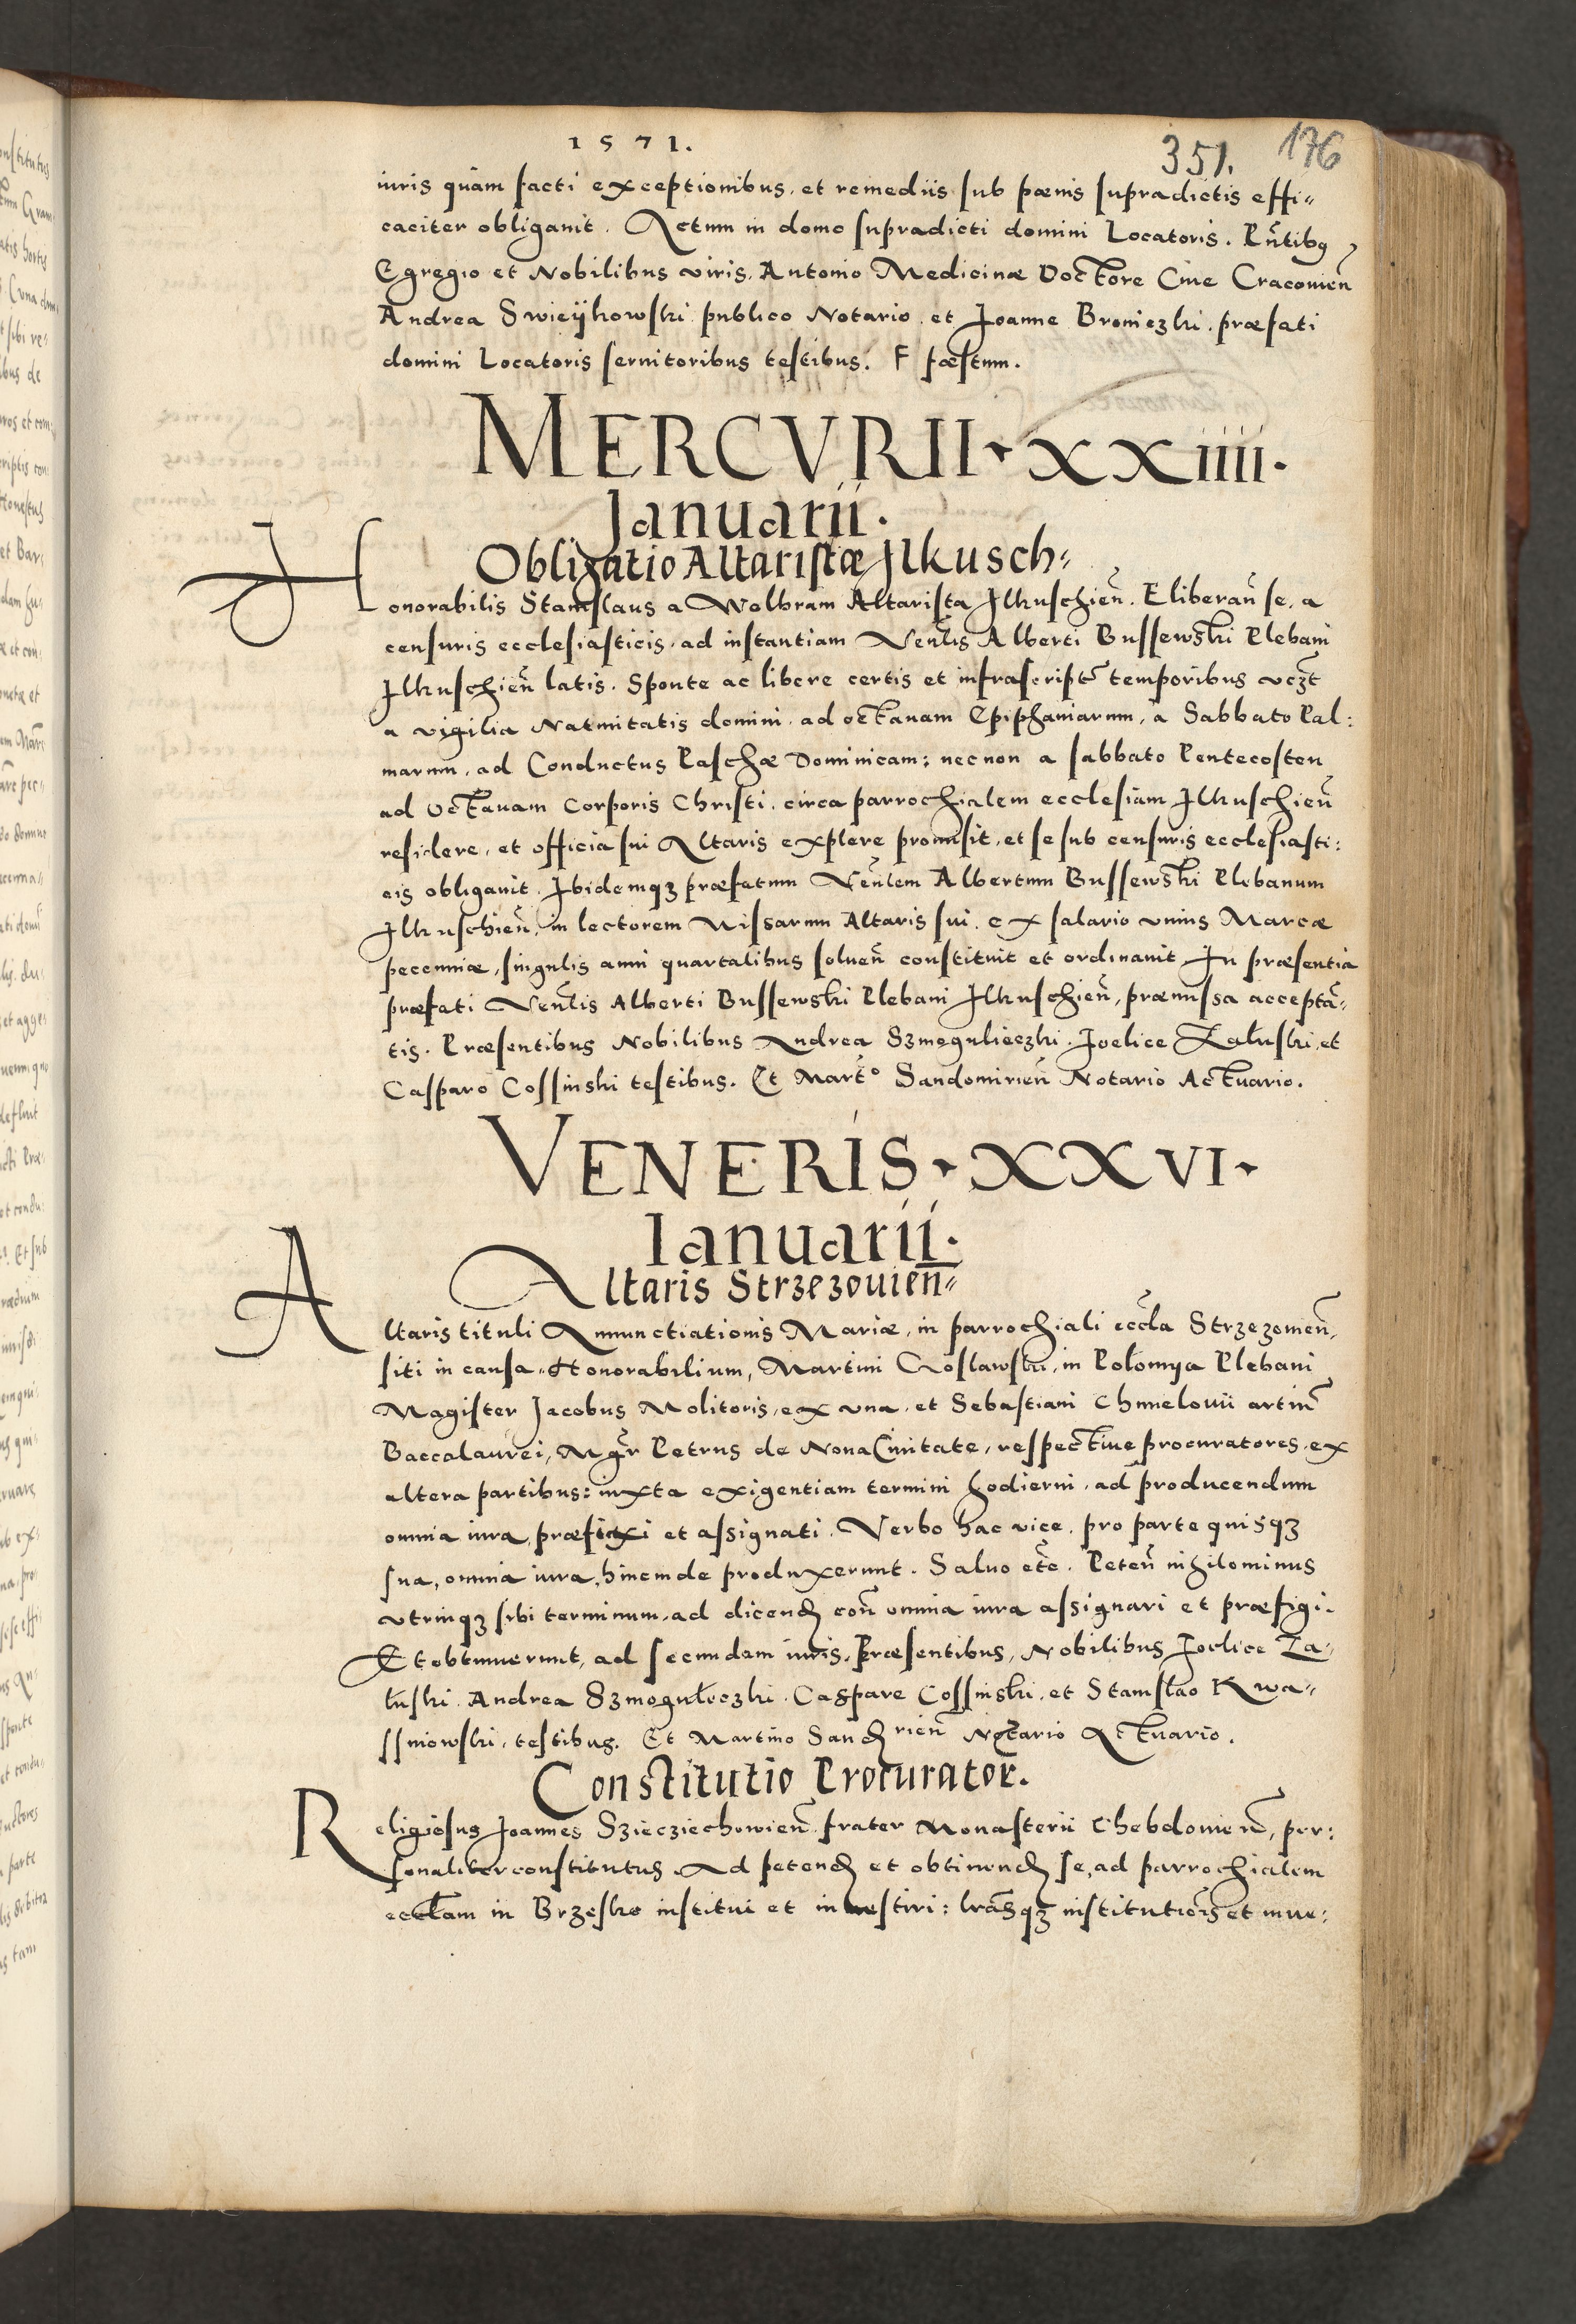 1571.
351. 176
iuris quàm facti exceptionibus et remediis sub pœnis supradictis effi„
caciter obligauit. Actum in domo supradicti domini Locatoris. Pñtibꝯ
Egregio et Nobilibus viris, Antonio Medicinæ Doctore Ciue Cracouień
Andrea Swieÿkowski publico Notario et Joanne Broniczki præfati
domini Locatoris seruitoribus testibus. F fæstum.
MERCVRII XXIIII.
Januarii.
Obligatio Altaristæ Jlkusch„
Honorabilis Stanislaus a Wolbram Altarista Jlkuschień. Eliberań se, a
censuris ecclesiasticis, ad instantiam Veńlis Alberti Bussewski Plebani
Jlkuschień latis. Sponte ac libere certis et infrascript̃ temporibus vcʒt
a vigilia Natiuitatis domini ad octauam Epiphaniarum, a Sabbato Pal:
marum, ad Conductus Paschæ Dominicam: necnon a sabbato Pentecosten
ad Octauam Corporis Christi, circa parrochialem ecclesiam Jlkuschień
residere, et officia sui Altaris explere promisit, et se sub censuris ecclesiasti:
cis obligauit. Ibidemqʒ præfatum Veńlem Albertum Bussewski Plebanum
Jlkuschień, in lectorem Missarum Altaris sui, ex salario vnius Marcæ
pecuniæ, singulis anni quartalibus soluen̄ constituit et ordinauit In præsentia
præfati Veńlis Alberti Bussewski Plebani Jlkuschień, præmissa acceptā„
tis. Præsentibus Nobilibus Andrea Szmogulieczki. Joelice Załuski, et
Casparo Cossinski testibus. Et Mart̃º Sandomirień Notario Actuario.
VENERIS XXVI
Ianuarii.
Altaris Strzezouien̄„
Altaris tituli Annunctiationis Mariæ, in parrochiali eccla Strzezouień,
siti in causa Honorabilium, Martini Croslawski, in Połomya Plebani
Magister Jacobus Molitoris, ex vna, et Sebastiani Chmielouii artiu͂
Baccalaurei, Mgr̃ Petrus de Noua Ciuitate, respectiue procuratores, ex
altera partibus: iuxta exigentiam termini hodierni, ad producendum
omnia iura, præfixi et assignati. Verbo hac vice, pro parte quisqʒ
sua, omnia iura, hincinde produxerunt. Saluo et̃c. Peteń nihilominus
vtrinqʒ sibi terminum, ad dicendꝫ coñ omnia iura assignari et præfigi.
Et obtinuerunt, ad secundam iuris. Præsentibus, Nobilibus Joelice Za„
łuski. Andrea Szmogułeczki. Caspare Cossinski, et Stanisłao Kwa„
ssniowski, testibus. Et Martino Sandꝫrień Notario Actuario.
Constitutio Procurator̃.
Religiosus Joannes Szieczlechowień frater Monasterii Chebdouień, per:
sonaliter constitutus Ad petendꝫ et obtinendꝫ se, ad parrochialem
eccłam in Brzesko institui et inuestiri: lrãsqʒ institutiõis et inue: